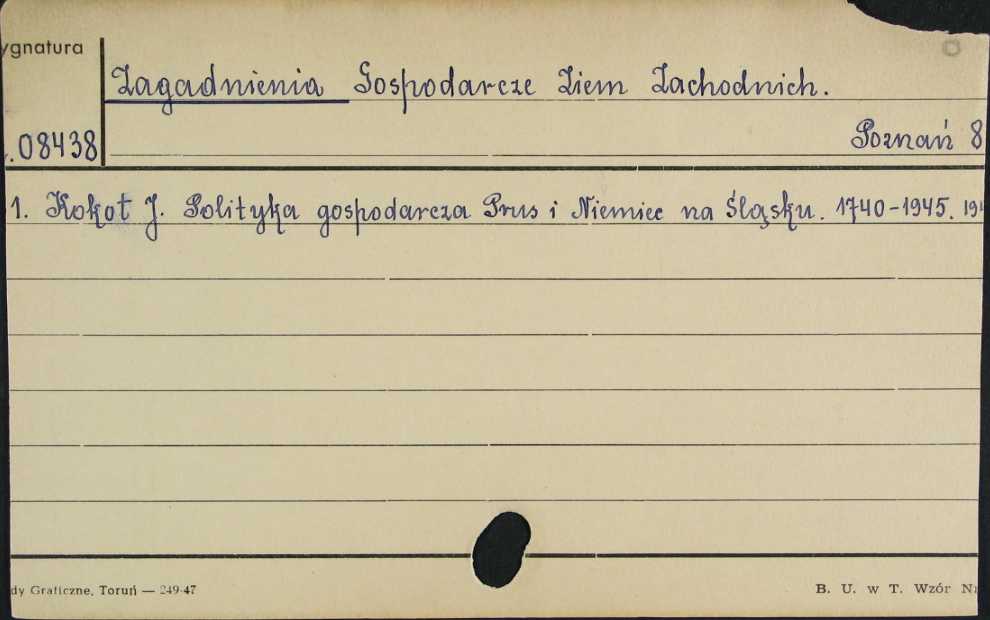 ygnatura
Zagadnienia Gospodarcze Ziem Zachodnich.
.08438
Poznań 8
1. Kokot J. Polityka gospodarcza Prus i Niemiec na Śląsku. 1740-1945. 19
dy Graficzne, Toruń — 249-47
B. U. w T. Wzór Nr